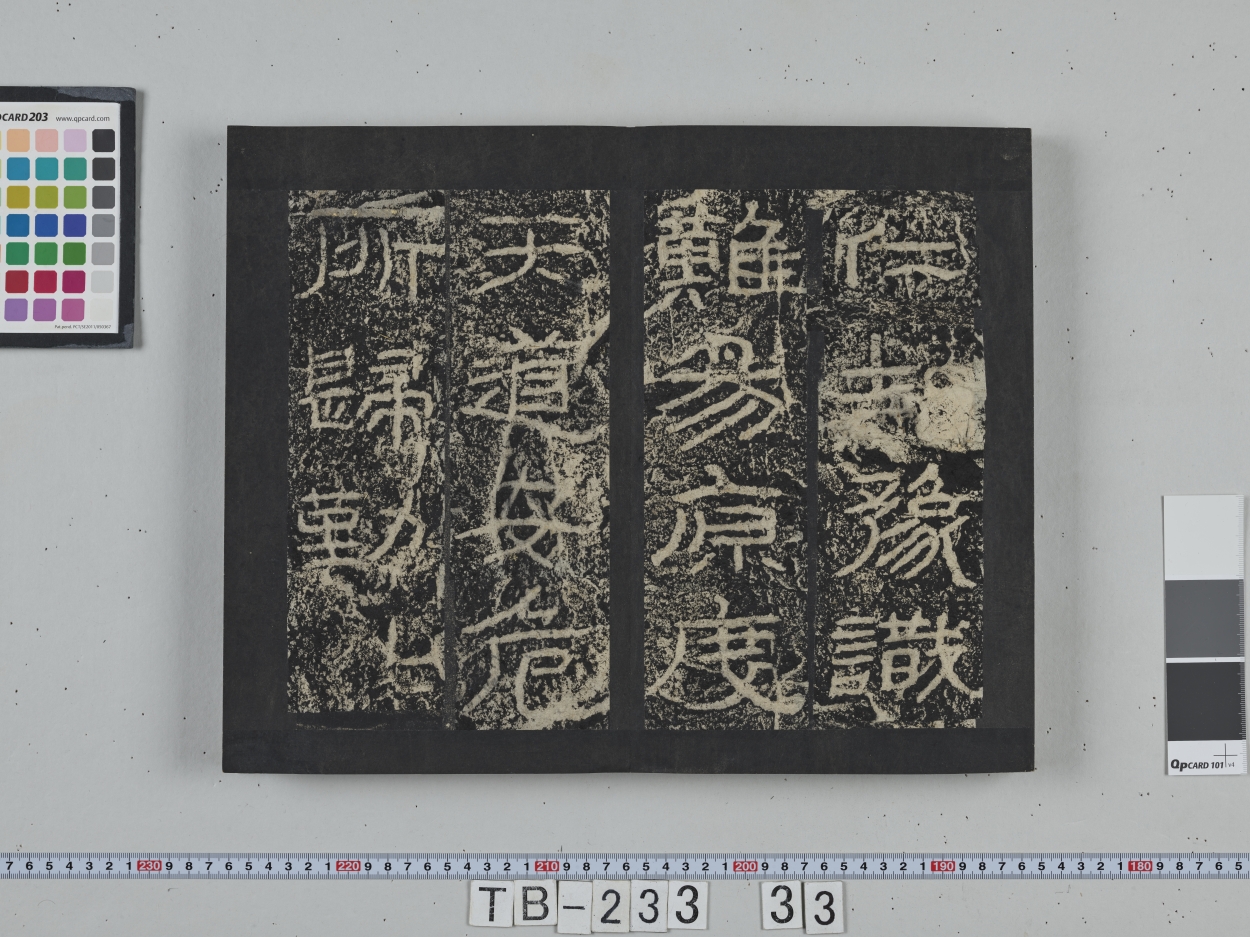 仁知豫識
難易原度
天道安危
所歸勤
QPCARD 203 www.qpcard.com
QPCARD 101 v4
7 6 5 4 3 2 1 230 9 8 7 6 5 4 3 2 1 220 9 8 7 6 5 4 3 2 1 210 9 8 7 6 5 4 3 2 1 200 9 8 7 6 5 4 3 2 1 190 9 8 7 6 5 4 3 2 1 180 9 8 7 6 5
TB-233 33